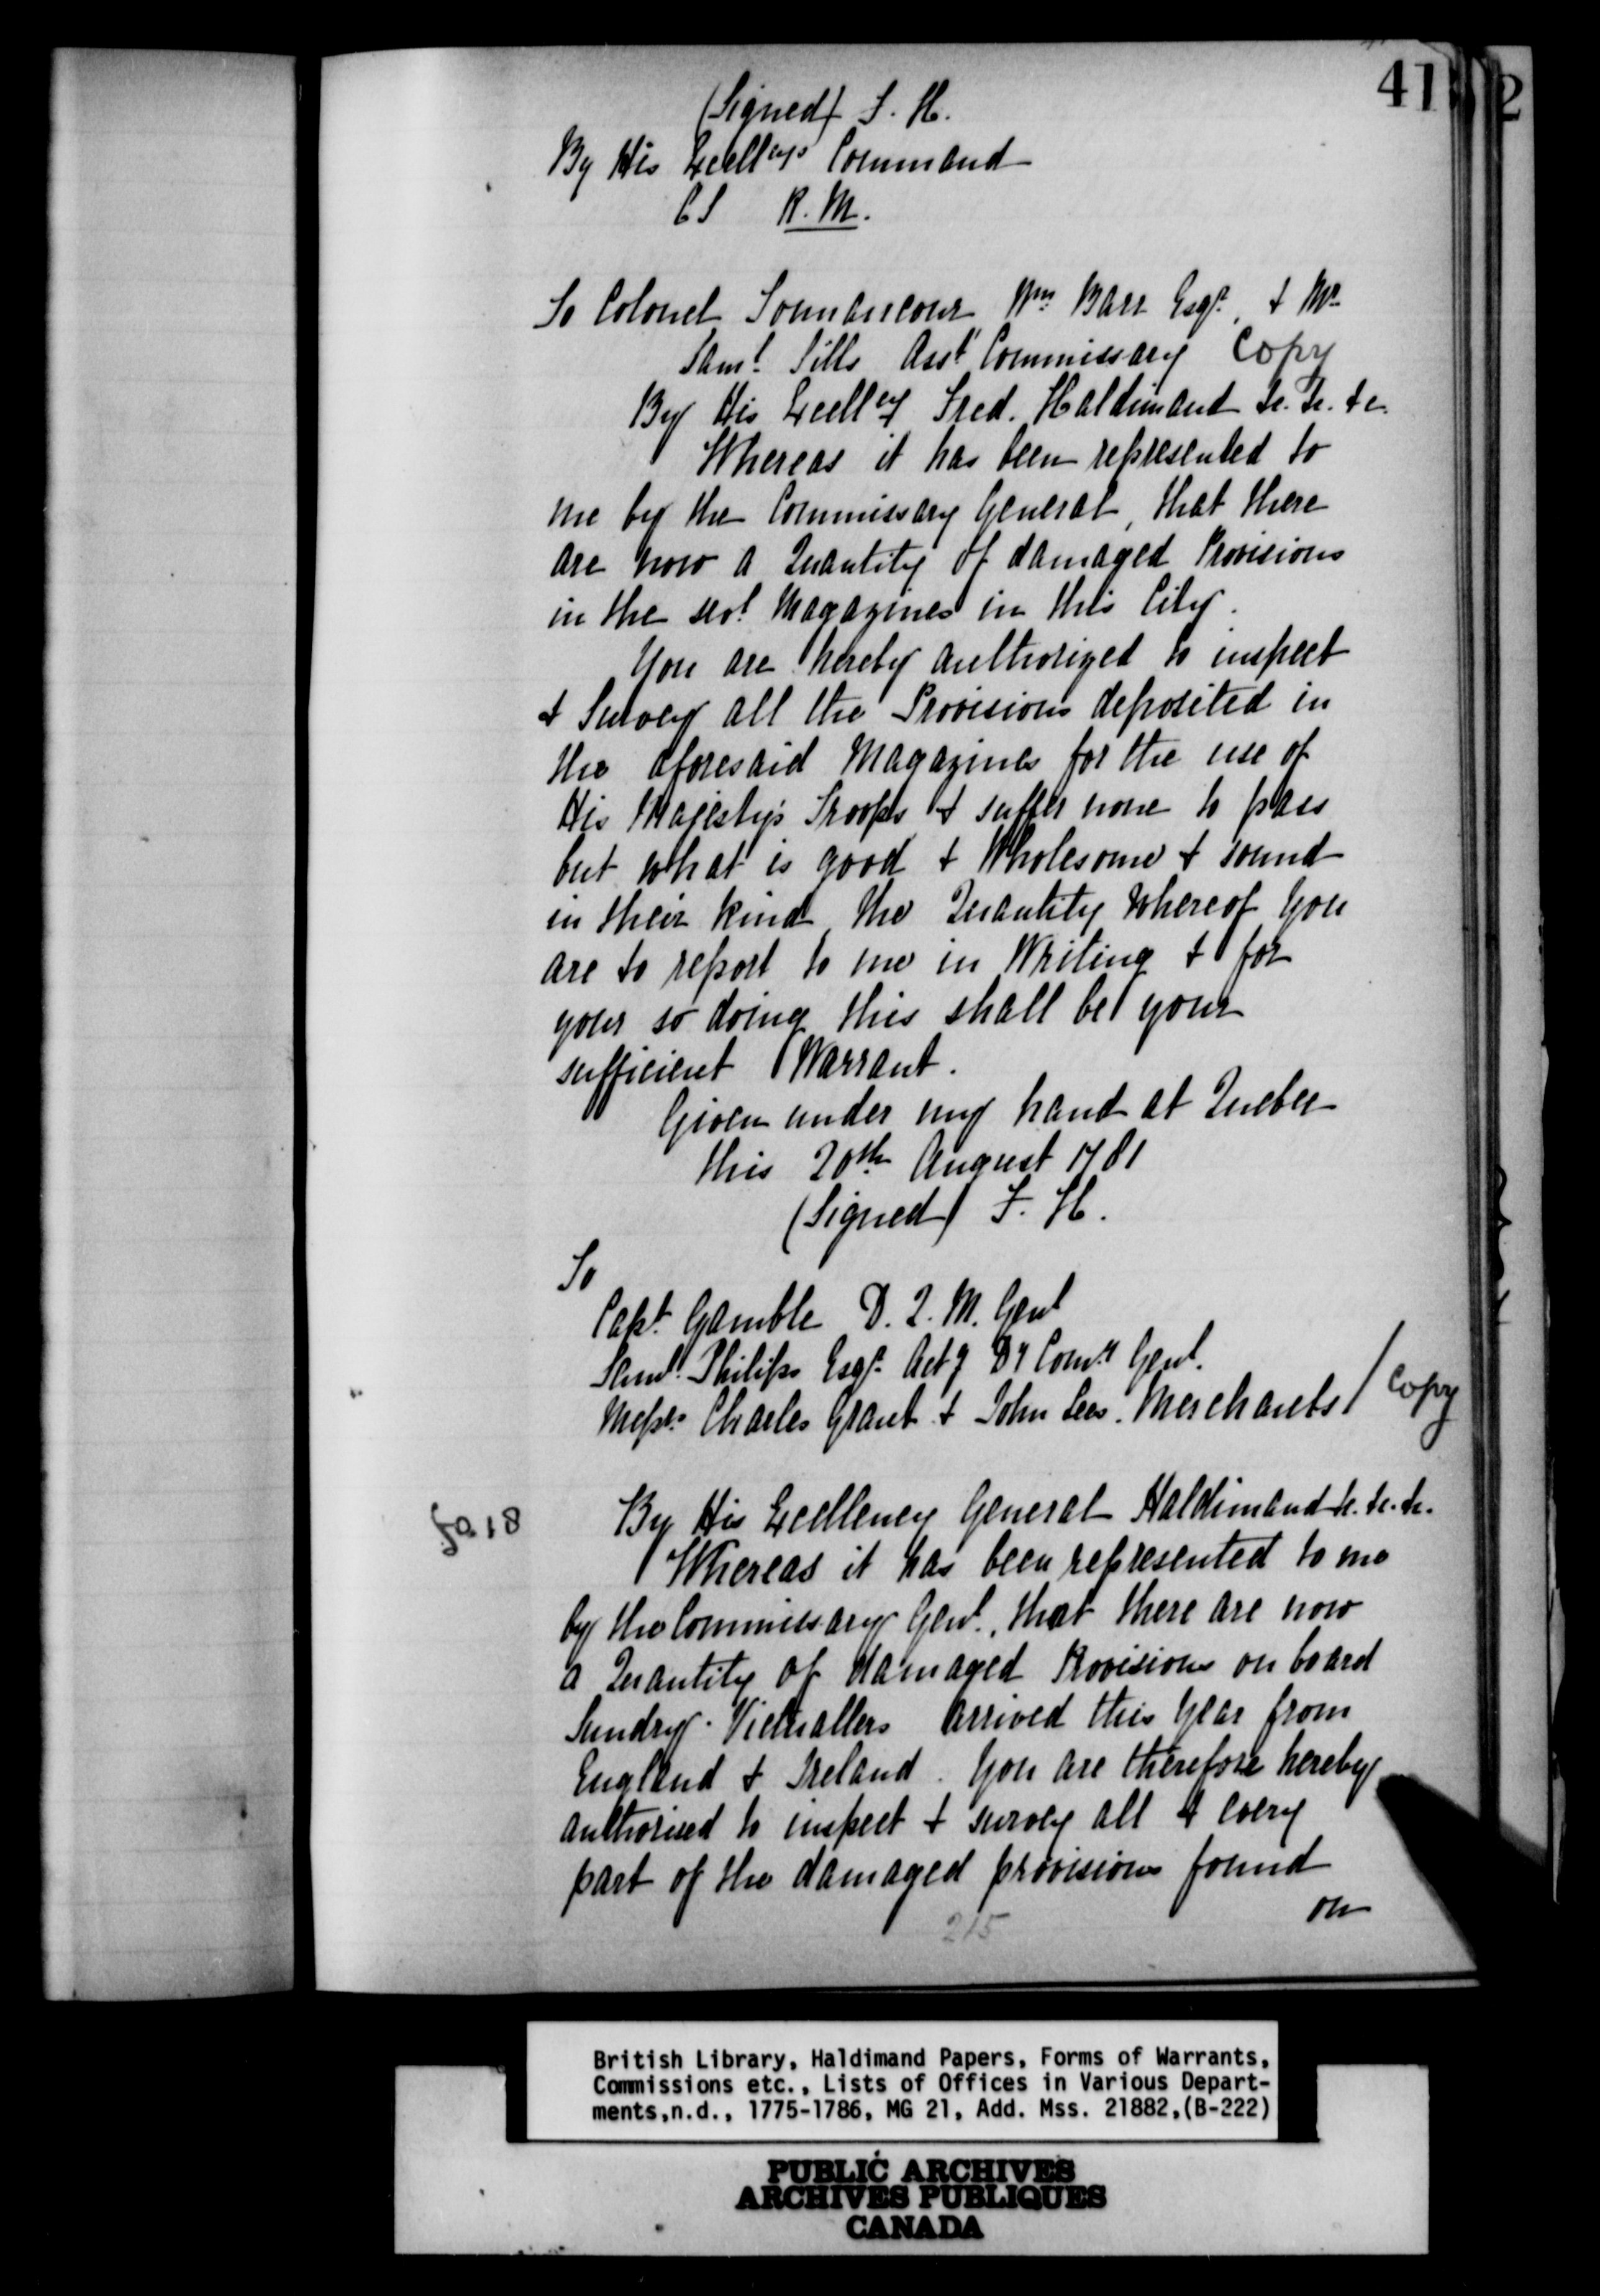 41
2
(Signed) F. H.
By His Excell<sup>cys</sup> Command
CS R. M.
To Colonel Tonnancour W<sup>m</sup> Barr Esq<sup>r</sup>. & M<sup>r</sup>
Sam<sup>l</sup>. Sills Ass<sup>t</sup> Commissary Copy
By His Excell<sup>cy</sup> Fred. Haldimand &c. &c. &c.
Whereas it has been represented to
me by the Commissary General, that there
are now a Quantity of damaged Provisions
in the sev<sup>l</sup> Magazines in this City.
You are hereby authorized to inspect
& Survey all the Provisions deposited in
the aforesaid Magazines for the use of
His Majesty's Troops & suffer none to pass
but what is good & Wholesome & sound
in their kind, the Quantity whereof you
are to report to me in Writing & for
your so doing this shall be your
sufficient Warrant.
Given under my hand at Quebec
this 20<sup>th</sup> August 1781
(Signed) F. H.
To
Cap<sup>t</sup>. Gamble D. Q. M. Gen<sup>l</sup>
Sam<sup>l</sup>. Philips Esq<sup>r</sup>. Act<sup>g</sup> D<sup>y</sup> Com<sup>y</sup> Gen<sup>l</sup>.
Mess<sup>rs</sup> Charles Grant & John Lees. Merchants / Copy
fo 18
By His Excellency General Haldimand &c. &c. &c.
Whereas it has been represented to me
by the Commissary Gen<sup>l</sup>., that there are now
a Quantity of damaged Provisions on board
Sundry Victuallers arrived this Year from
England & Ireland. You are therefore hereby
authorised to inspect & survey all & every
part of the damaged provisions found
on
215
British Library, Haldimand Papers, Forms of Warrants,
Commissions etc., Lists of Offices in Various Depart-
ments,n.d., 1775-1786, MG 21, Add. Mss. 21882,(B-222)
PUBLIC ARCHIVES
ARCHIVES PUBLIQUES
CANADA